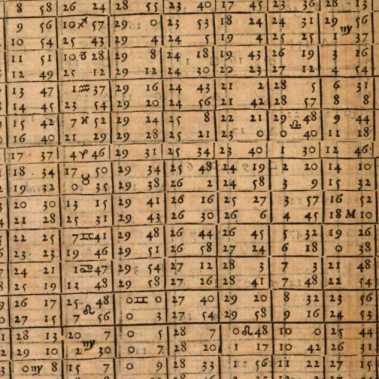 8 58 26 24 28 55 23 40 17 45 23 36 28 13
9 56 10 ♐ 57 29 0 23 53 18 24 24 31 29 ♍ 56
10 54 25 43 29 4 24 5 19 4 25 25 1 37
11 51 10 ♑ 28 29 8 24 18 19 43 26 19 3 16
12 49 25 12 29 12 24 30 20 23 27 12 4 54
13 47 ♒ 37 29 16 24 43 21 2 28 5 6 31
14 45 23 54 29 20 24 56 21 42 28 57 8 8
15 42 7 ♓ 52 29 24 25 8 22 21 29 ♎ 48 9 44
16 40 21 29 29 28 25 21 23 0 0 40 11 18
17 37 4 ♈ 46 29 31 25 34 23 40 1 30 12 46
18 34 17 ♉ 50 29 34 25 48 24 19 2 20 14 10
19 32 0 35 29 38 26 2 24 58 3 9 15 32
20 30 13 15 29 41 26 16 25 27 3 57 16 52
21 28 25 31 29 43 26 30 26 6 4 45 18 M 10
22 25 7 ♊ 41 29 48 26 44 26 45 5 32 19 26
23 23 19 46 29 51 26 58 27 24 6 18 0 38
24 21 47 29 54 27 12 28 3 7 3 21 48
25 19 13 48 29 58 27 26 28 41 7 48 22 54
26 17 25 ♌ 48 0 ♊ 0 27 40 29 20 8 32 23 56
27 15 7 56 0 3 27 54 29 58 9 16 24 53
28 13 20 7 0 5 28 7 0 ♌ 48 10 0 25 44
29 10 2 ♍ 30 0 7 28 20 1 17 10 42 26 31
0 ♍ 8 15 7 0 9 28 33 1 56 11 22 27 15